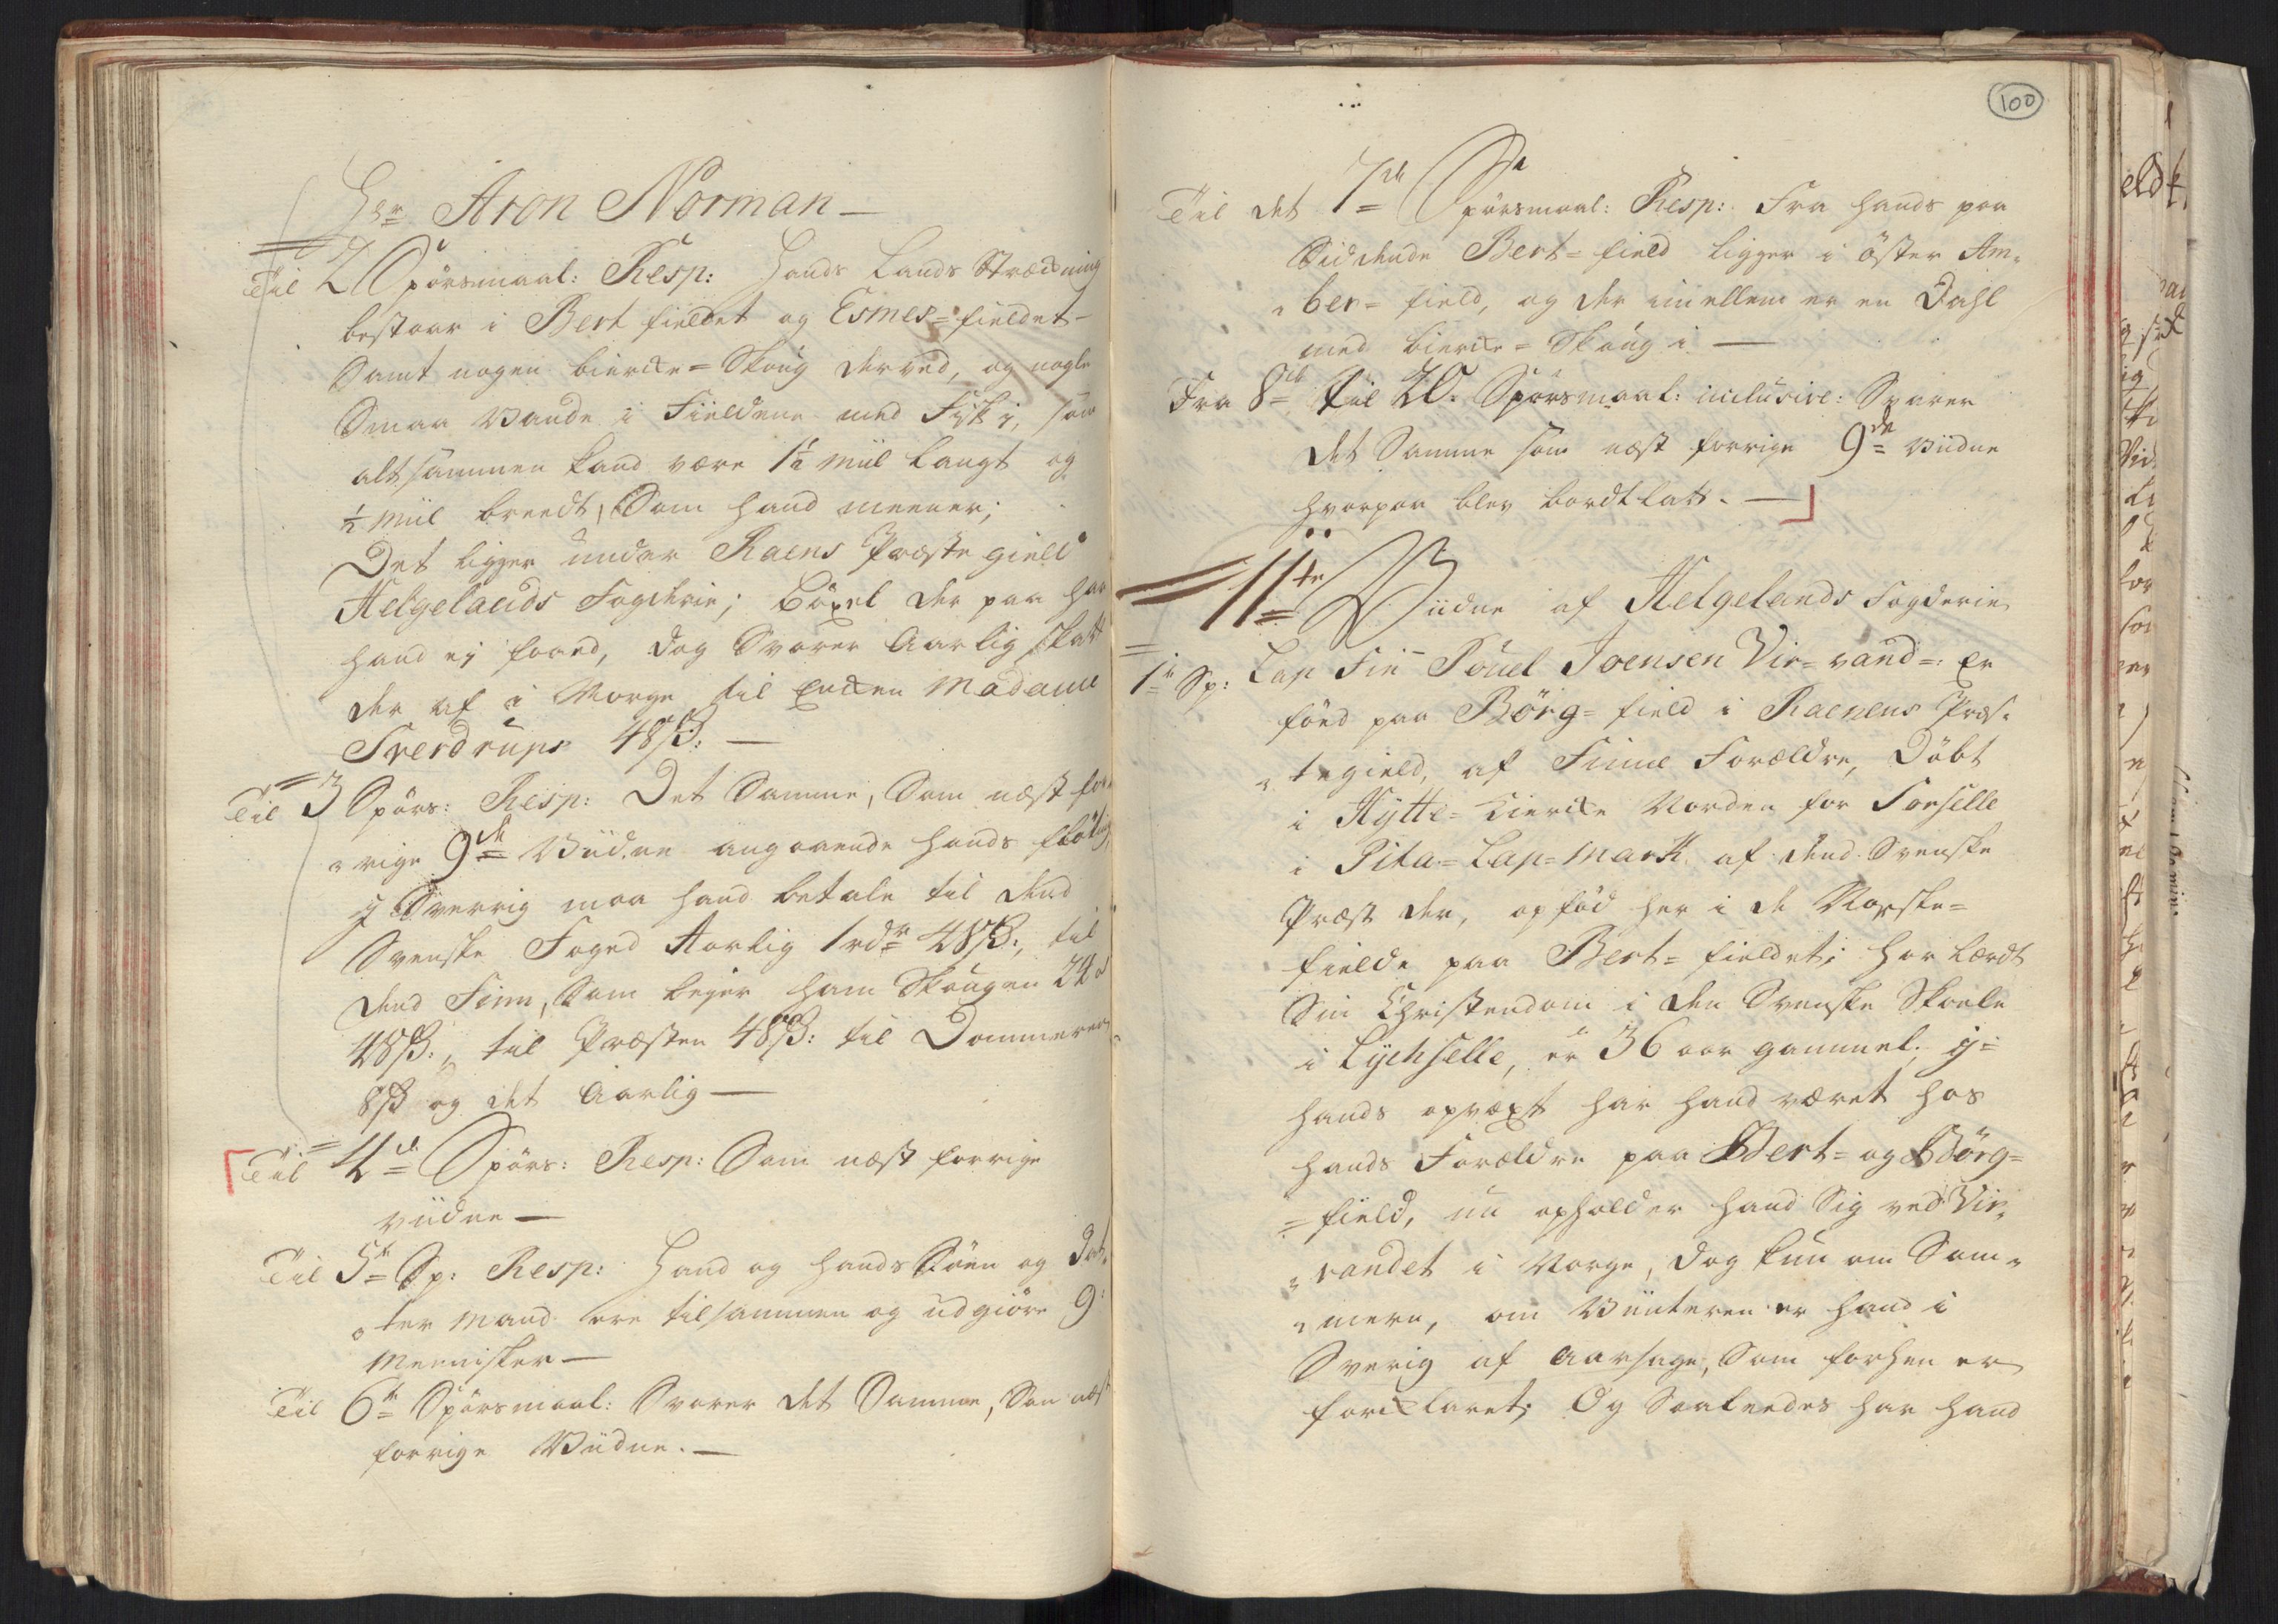 Hr Aron Norman —
Til 2 Spörsmaal: Resp: Hands Lands Strækning
bestaar i Bert fieldet og Esmes= fieldet -
Samt nogen biercke= Skoug derved, og nogle
Smaa Vande i Fieldene med Fisk i, som
altsammen kand være 1½ miil langt og
½ miil breedt, Som hand meener;
Det ligger under Raens Præste gield
Helgelands Fogderie; böxel der paa har
hand ej faaed, dog Svarer Aarlig skatt
der af i Norge til Encken Madame
Sverdrups 48 ß: —
Til 3 Spörs: Resp: Det Samme, Som næst for„
„rige 9de Viidne angaaende hands flötning,
i Sverrig maa hand betale til dend
Svenske Foged Aarlig 1 rdr 48 ß:, til
dend Finn, Som lejer ham Skougen 24 à
48 ß:, til Præsten 48 ß: til Dommeren
8 ß og det Aarlig —
Til 4de Spörs: Resp: Som næst forrige
viidne —
Til 5te Sp: Resp: Hand og hands Sön og Dat„
„ter Mand ere tilsammen og udgiöre 9:
Mennisker —
Til 6te Spörsmaal: Svarer det Samme, Som næst
forrige Viidne. —
100
Til det 7de Spörsmaal: Resp: Fra hands paa
Siddende Bert= field ligger i öster Am„
„ber= field, og der imellem er en Dahl
med biercke= Skoug i —
Fra 8de til 20. Spörsmaal: inclusive: Svarer
det Samme som næst forrige 9de Viidne
hvorpaa blev bordtlatt. —
11te Viidne af Helgelands Fogderie
1te Sp: Lap Fin Pouel Joensen Vir= vand=: Er
föed paa Börg= field i Raenens Præs„
„tegield, af Finne Forældre, Döbt
i Hytte= Kiercke Norden for Sorselle
i Pita= Lap= Mark af dend Svenske
Præst der, opföd her i de Norske=
fielde paa Bert= fieldet; har lærdt
Sin Christendom i den Svenske Skoele
i Lychselle, er 36 aar gammel. I=
hands opvæxt har hand været hos
hands Forældre paa Bert= og Börg=
= field, nu opholder hand Sig ved Vir„
„vandet i Norge, dog kun om Som„
„mern, om Viinteren er hand i
Sverig af Aarsage, Som forhen er
forcklaret; Og Saaleedes har hand